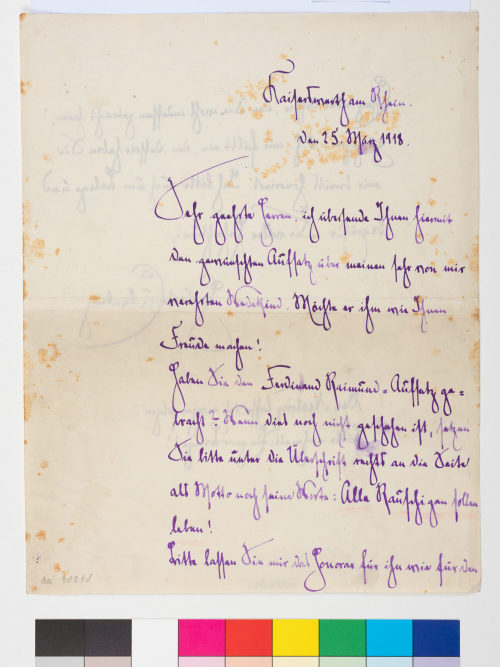 Kaiserswerth am Rhein.
den 25. März 1918.
Sehr geehrte Herren, ich übersende Ihnen hiermit
den gewünschten Aufsatz über meinen sehr von mir
verehrten Wedekind. Möchte er ihm wie Ihnen
Freude machen!
Haben Sie den Ferdinand Raimund-Aufsatz ge=
bracht? Wenn dies noch nicht geschehen ist, setzen
Sie bitte unter die Überschrift rechts an die Seite
als Motto noch seine Worte: Alle Rauschigen sollen
leben!
Bitte lassen Sie mir das Honorar für ihn wie für den